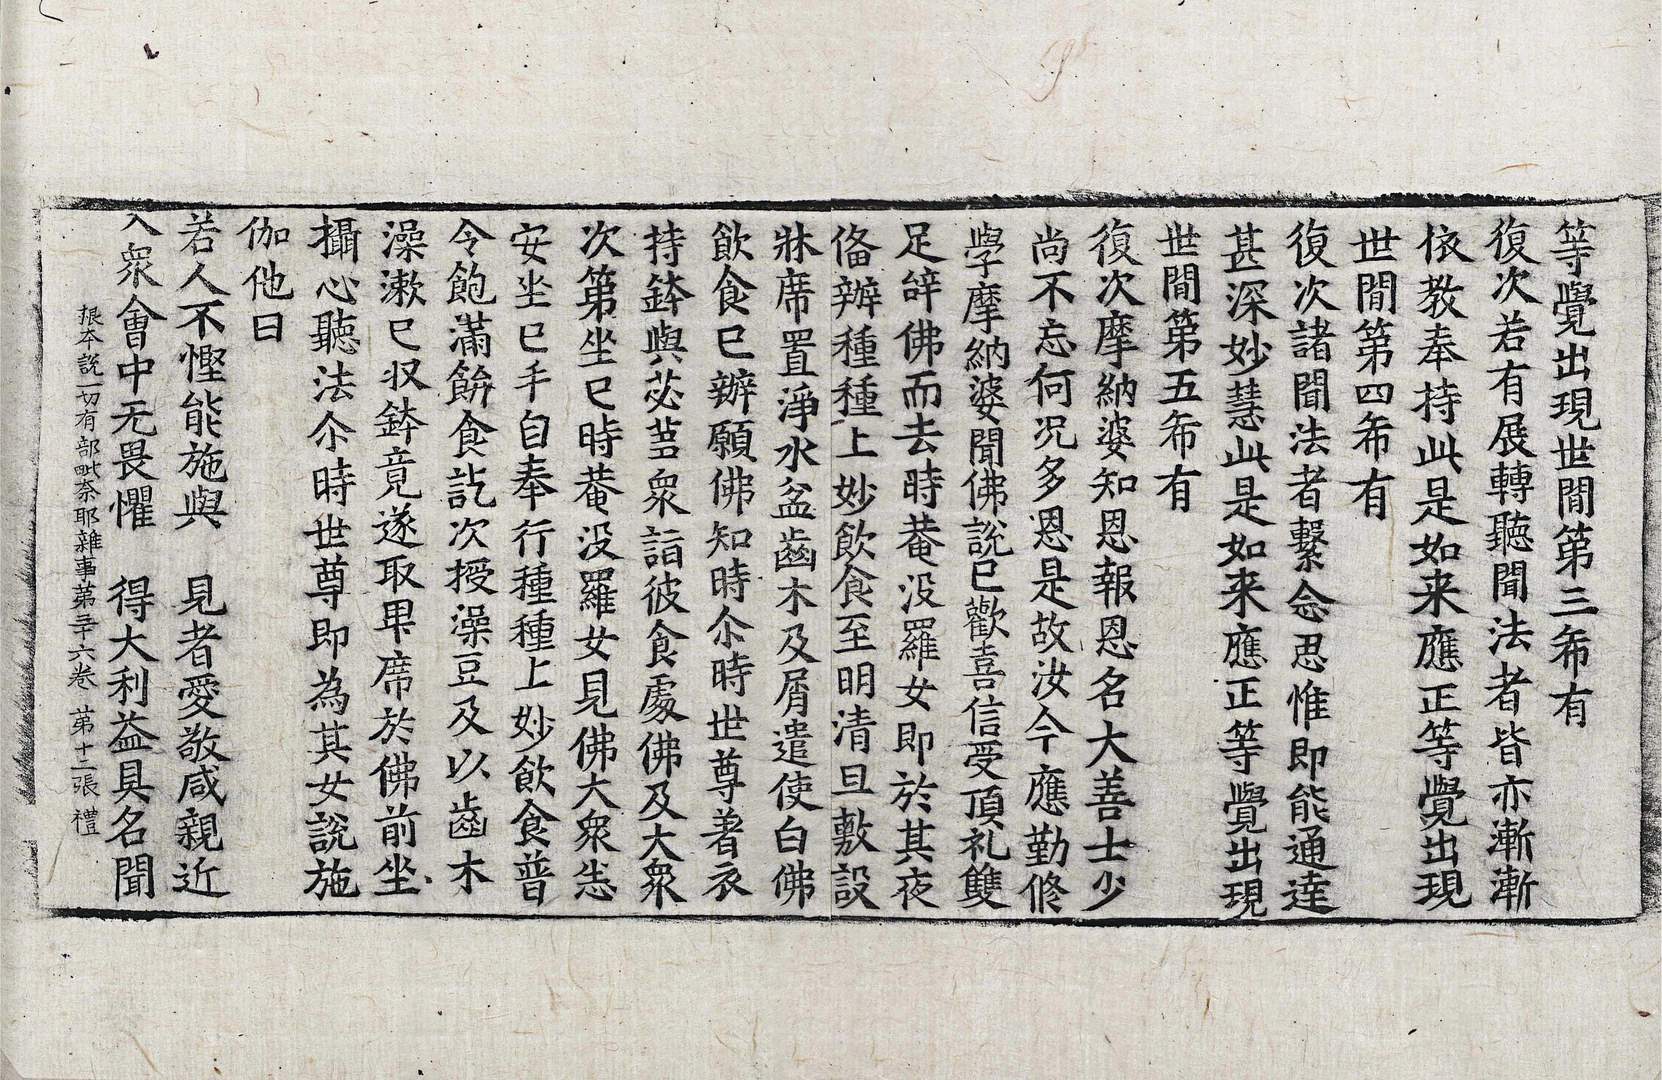 等覺出現世間第三希有
復次若有展轉聽聞法者皆亦漸漸
依教奉持此是如来應正等覺出現
世間第四希有
復次諸聞法者繫念思惟即能通達
甚深妙慧此是如来應正等覺出現
世間第五希有
復次摩納婆知恩報恩名大善士少
尚不忘何況多恩是故汝今應勤修
學摩納婆聞佛說已歡喜信受頂礼雙
足辝佛而去時菴没羅女即於其夜
俻辦種種上妙飲食至明清旦敷設
牀席置淨水盆齒木及屑遣使白佛
飲食已辦願佛知時尒時世尊著衣
持鉢與苾芻衆詣彼食處佛及大衆
次第坐已時菴没羅女見佛大衆悉
安坐已手自奉行種種上妙飲食普
令飽滿飾食訖次授澡豆及以齒木
澡漱已収鉢竟遂取卑席於佛前坐
攝心聽法尒時世尊即為其女說施
伽他曰
若人不慳能施與　見者愛敬咸親近
入衆會中无畏懼　得大利益具名聞
根本說一切有部毗奈耶雜事第三十六卷　第十二張　禮